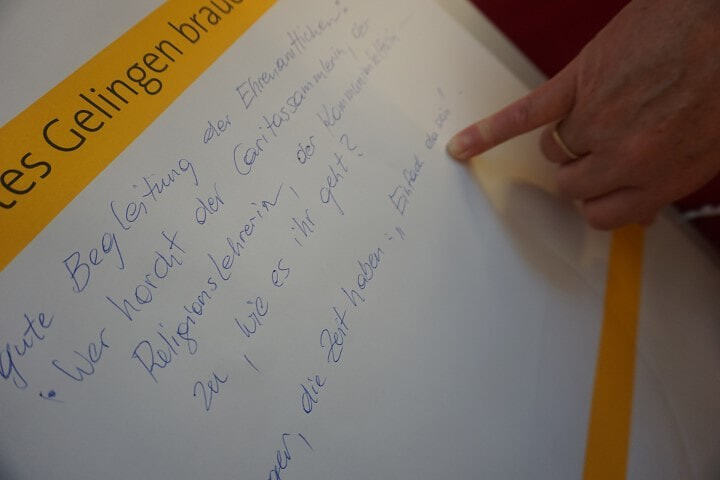 tes Gelingen brauc
gute Begleitung der Ehrenamtlichen:
"Wer horcht der Caritassammlerin, der
Religionslehrerin, der Kommunionhelferin
zu, wie es ihr geht?
die Zeit haben: "Einfach da sein"